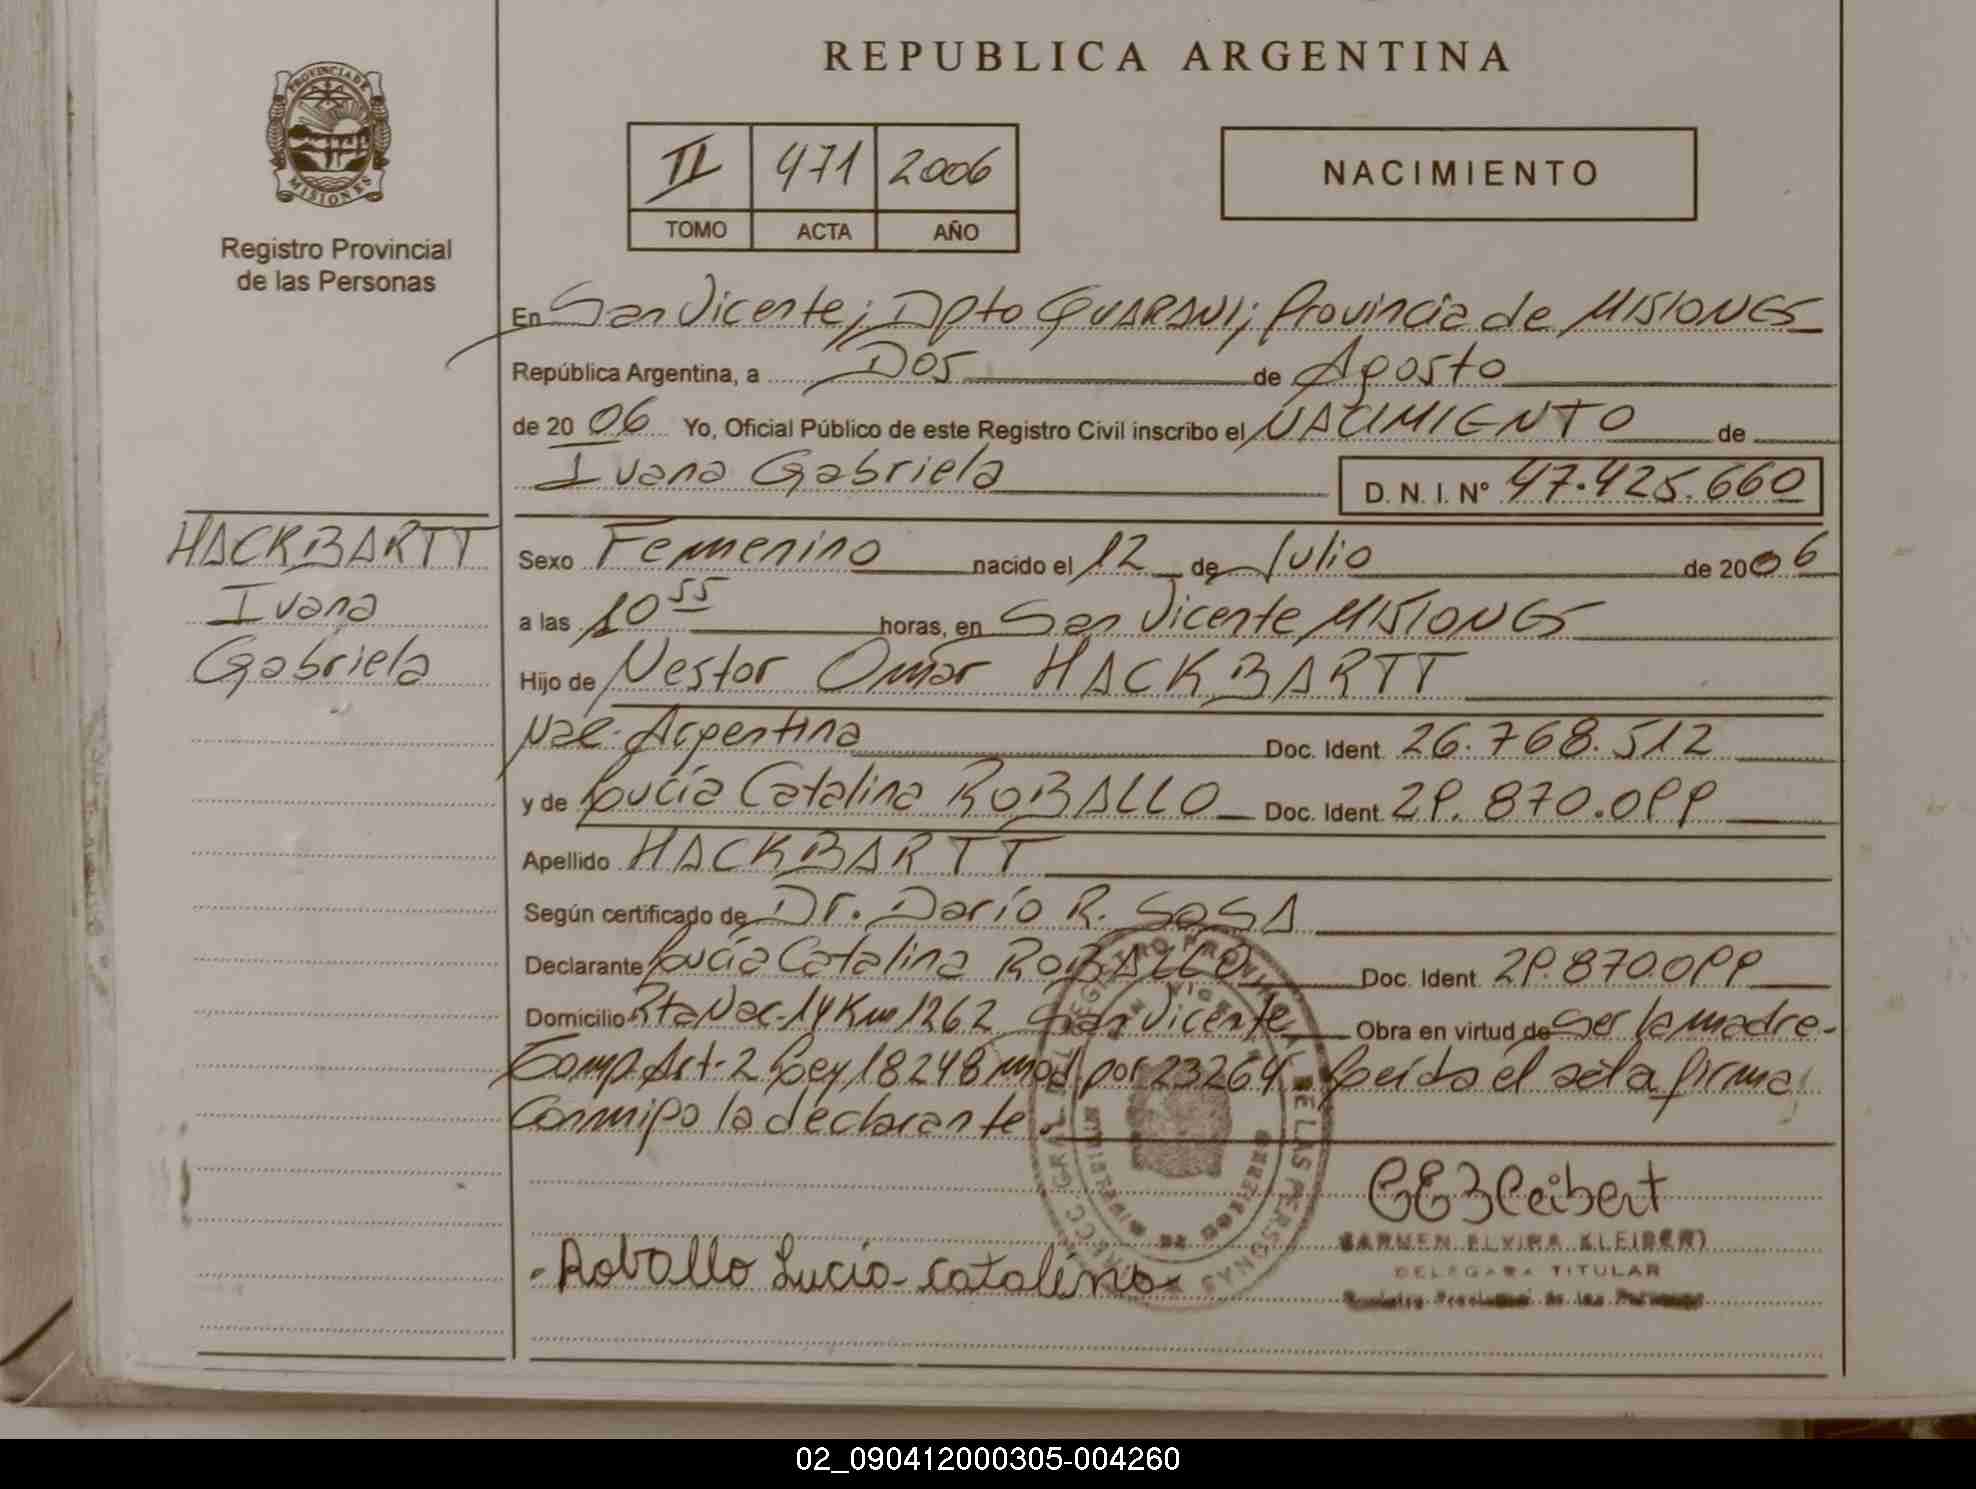 REPUBLICA ARGENTINA
PROVINCIA DE
MISIONES
Registro Provincial
de las Personas
II 471 2006
TOMO ACTA AÑO
NACIMIENTO
En San Vicente; Dpto GUARANI; Provincia de MISIONES
República Argentina, a Dos de Agosto
de 2006 Yo, Oficial Público de este Registro Civil inscribo el NACIMIENTO de
Ivana Gabriela D. N. I. Nº 47.425.660
HACKBARTT
Ivana
Gabriela
Sexo Femenino nacido el 12 de Julio de 2006
a las 10 55 horas, en San Vicente MISIONES
Hijo de Nestor Omar HACKBARTT
Nac. Argentina Doc. Ident. 26.768.512
y de Lucía Catalina ROBALLO Doc. Ident. 29.870.099
Apellido HACKBARTT
Según certificado de Dr. Darío R. SOSA
Declarante Lucía Catalina ROBALLO Doc. Ident. 29.870.099
Domicilio Rta Nac. 14 Km 1262 San Vicente Obra en virtud de ser la madre-
Comp. Art. 2 Ley 18248 mod. por 23264 Leída el acta firma
Conmigo la declarante.
Roballo Lucia catalina
CARMEN ELVIRA KLEIBERT
DELEGADA TITULAR
Registro Provincial de las Personas
02_090412000305-004260